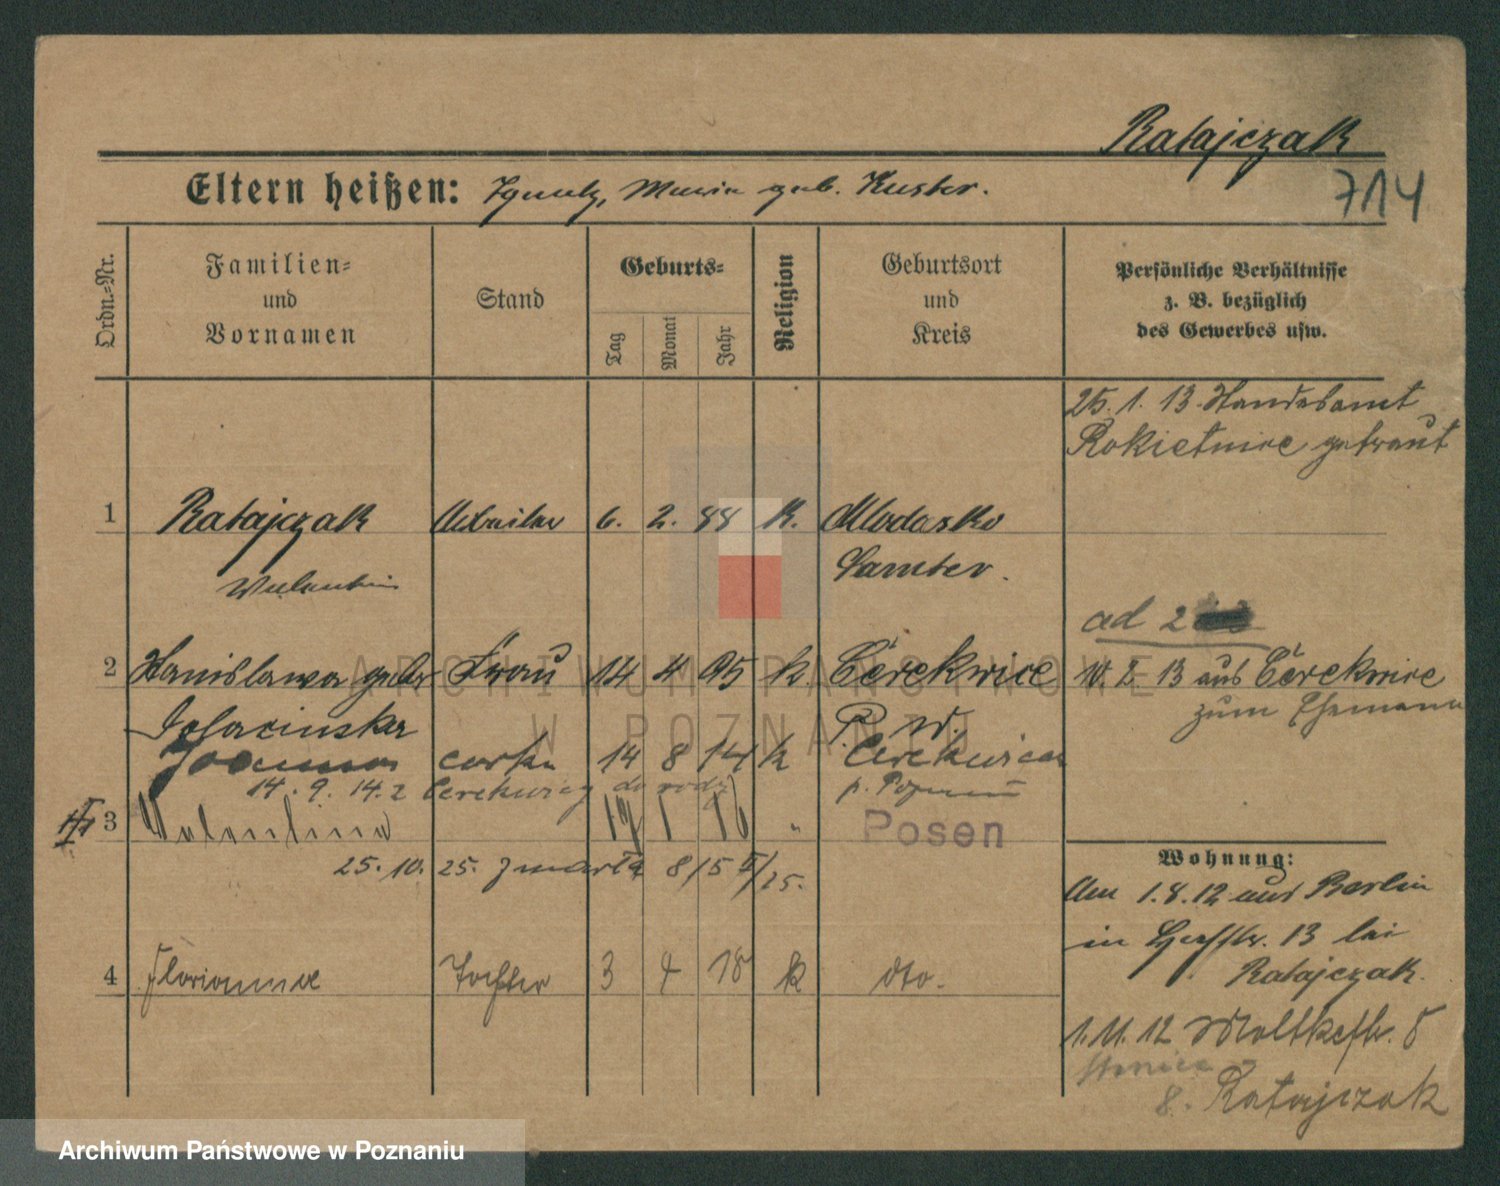 Ratajczak
Eltern heißen: Ignatz, Maria geb. Kuster.
714
Ordn.-Nr.
Familien-
und
Vornamen
Stand
Geburts-
Tag
Monat
Jahr
Religion
Geburtsort
und
Kreis
Persönliche Verhältnisse
z. B. bezüglich
des Gewerbes usw.
25. 1. 13. Standesamt
Rokietnice getraut
1 Ratajczak Arbeiter 6. 2. 88 K. Mlodasko
Valentin Samter.
ad 2
2 Stanislawa geb. Frau 14 4 95 k. Cerekwice
10. 2. 13 aus Cerekwice
zum Ehemann
P. W.
Joanna corka 14 8 14 k Cerekwica
14. 9. 14. z Cerekwicy do
p. Poznań
3 Valentina 19 1 16 " Posen
25. 10. 25. zmarła 8/5 25.
Wohnung:
Am 1.8.12 aus Berlin
in 13 bei
Ratajczak.
4 Florianna Tochter 3 4 18 k dto.
1. 11. 12 Moltkestr. 8
b. Ratajczak
ARCHIWUM PAŃSTWOWE
W POZNANIU
Archiwum Państwowe w Poznaniu